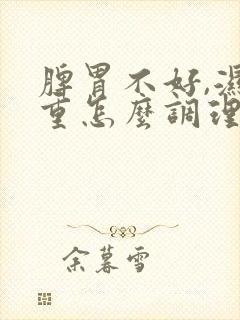 脾胃不好,濕
重怎麼調理
余暮雪